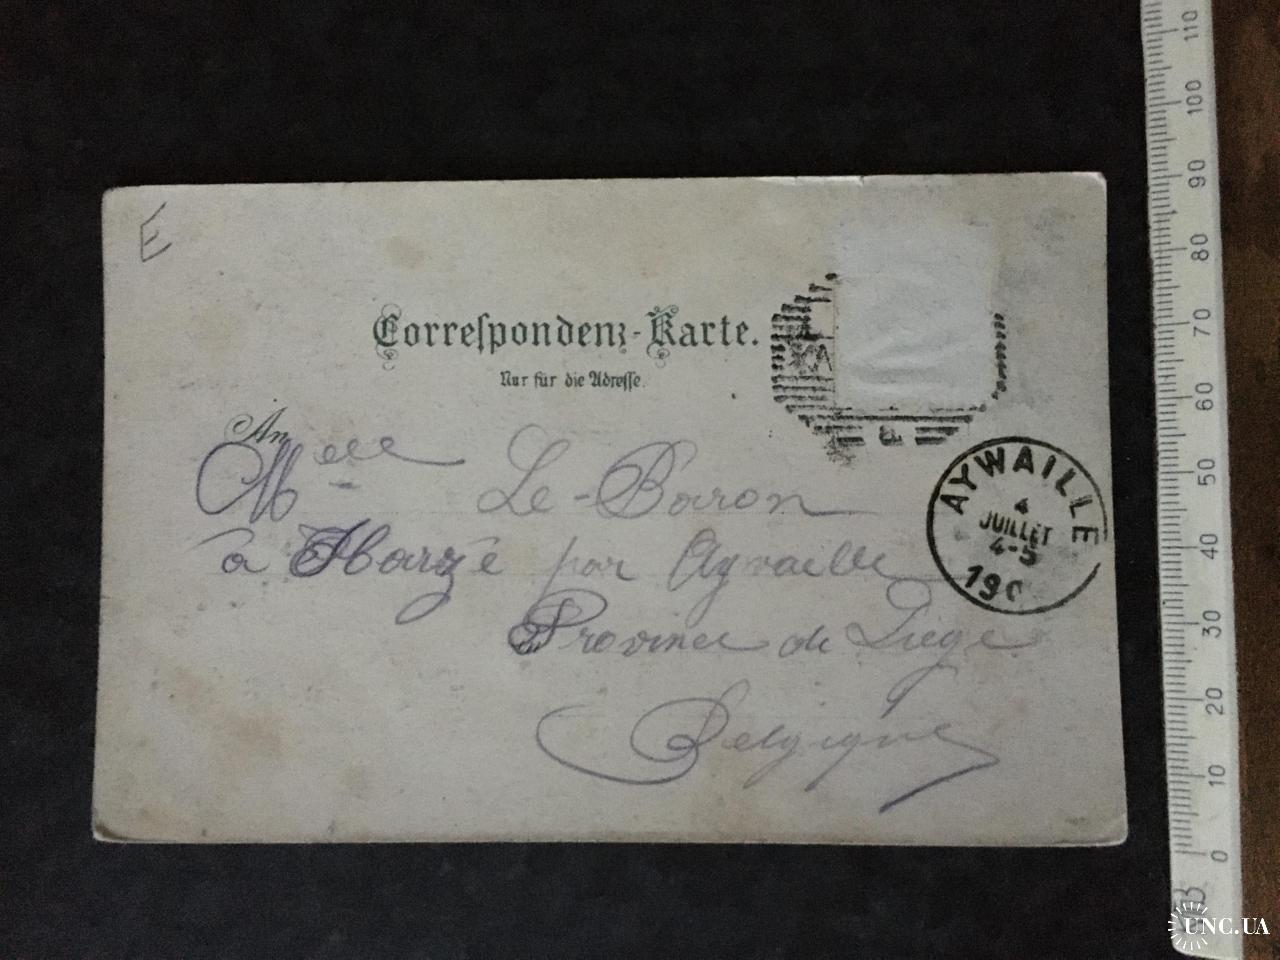 E
Correſpondenz-Karte.
Nur für die Adreſſe.
An
Melle Le-Baron
à Harzé par Aywaille
Province de Liège
Belgique
AYWAILLE
4
JUILLET
4-5
190
110
100
90
80
70
60
50
40
30
20
10
0
UNC.UA